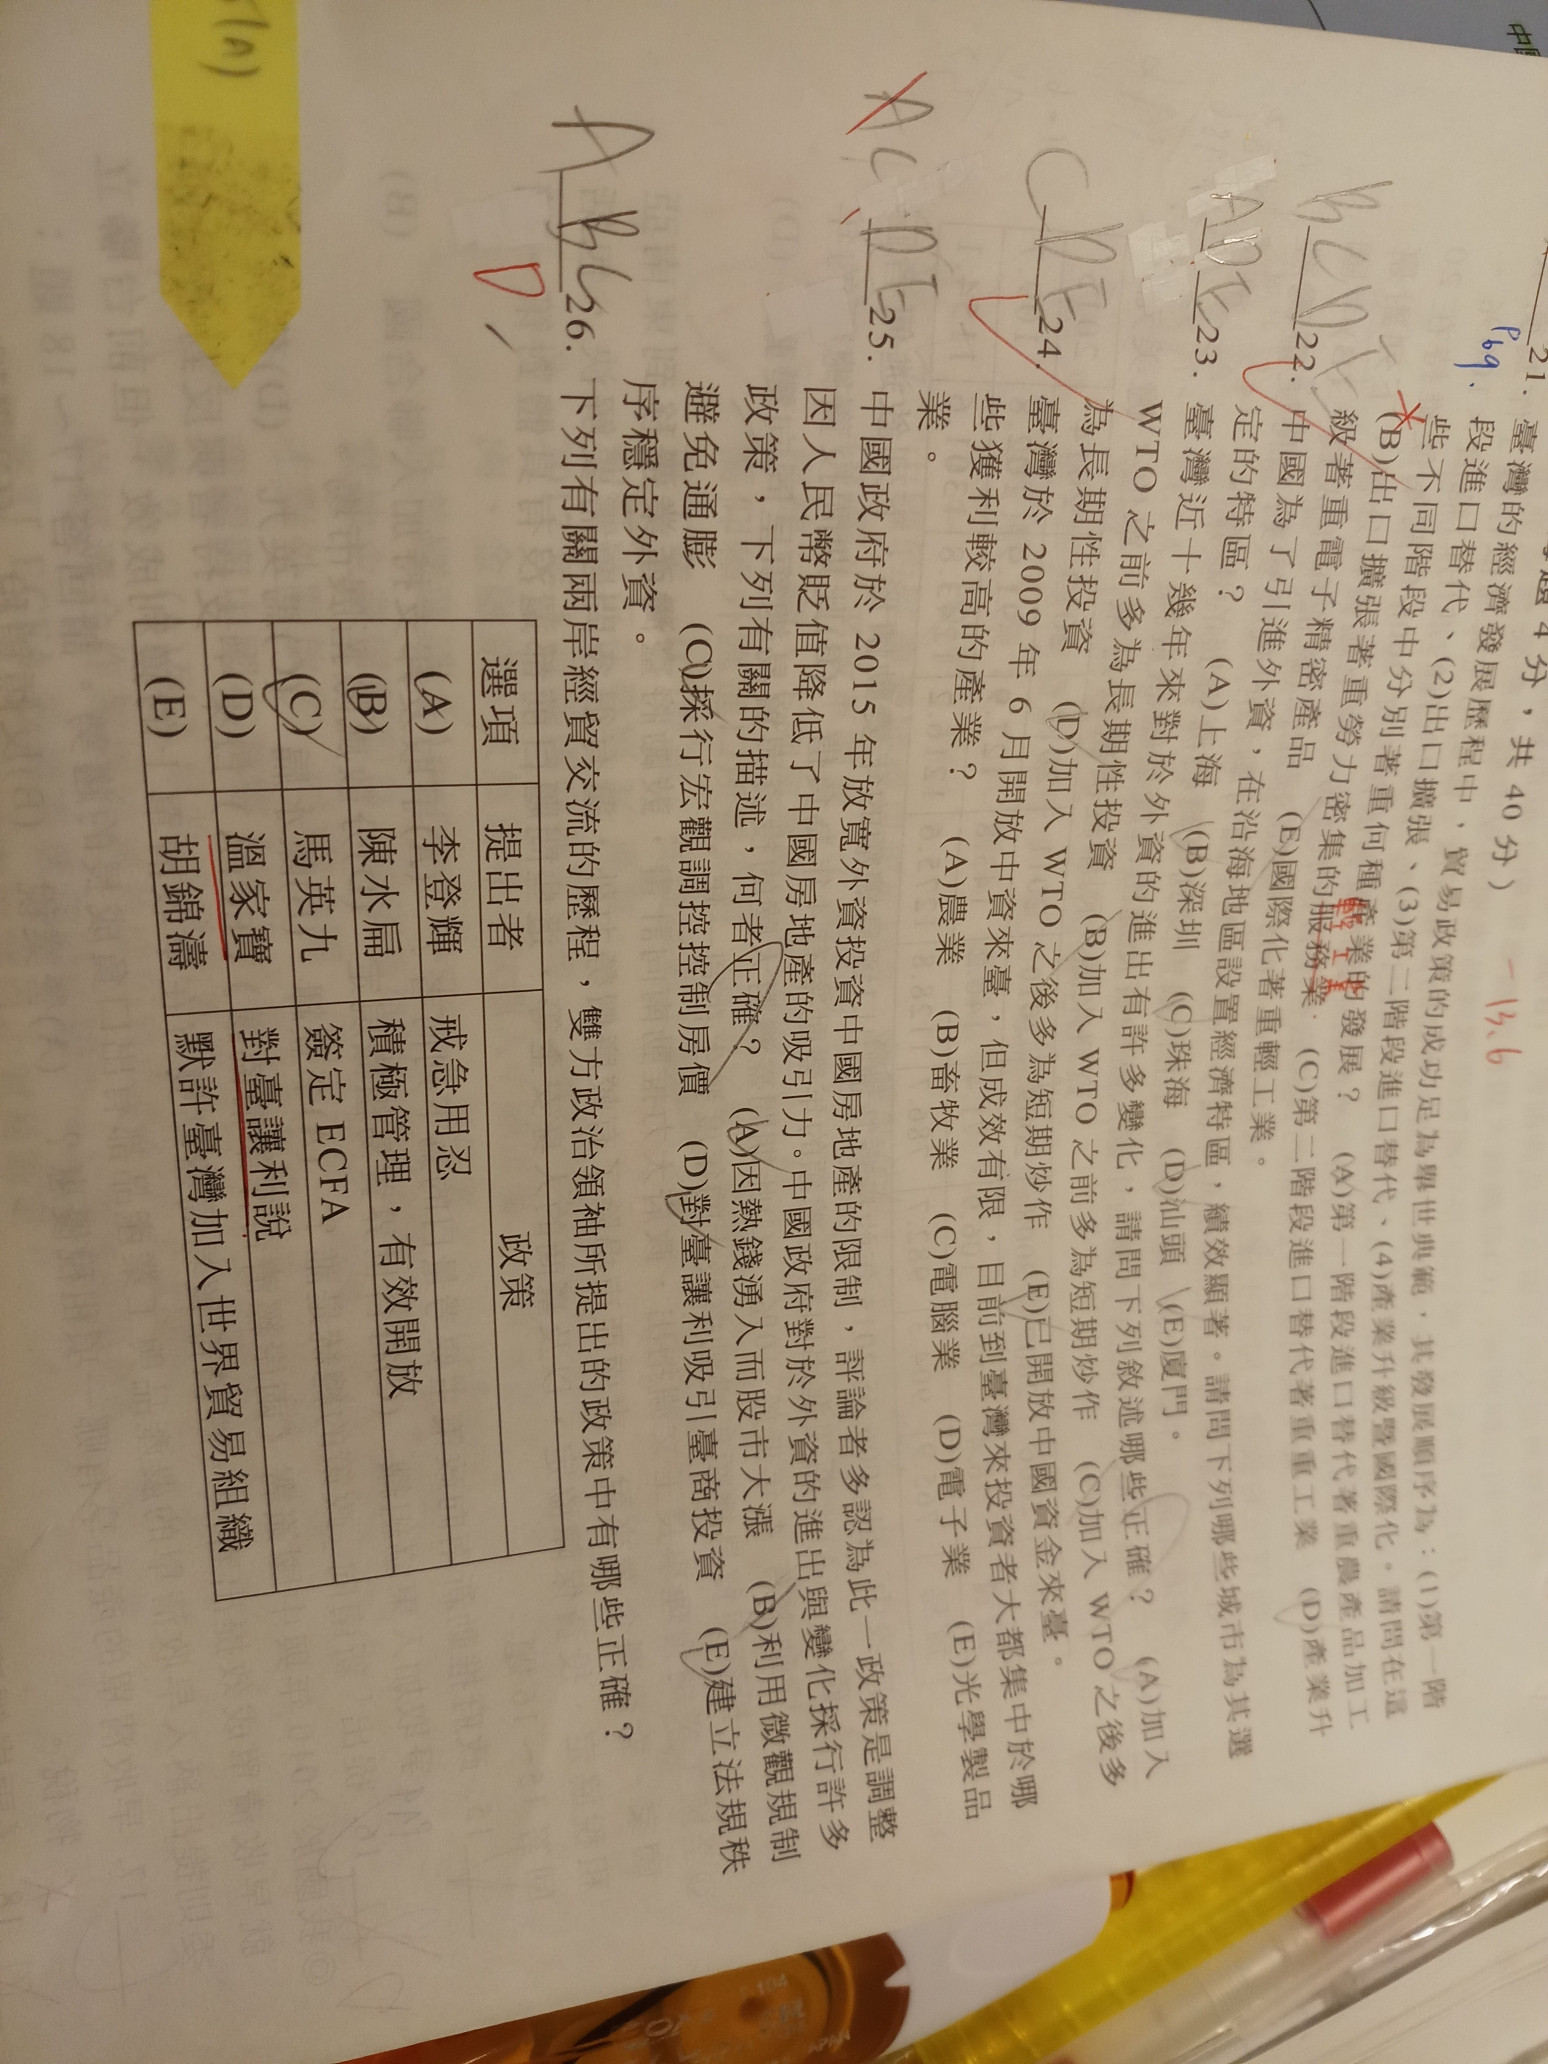 題4分,共40分) -13.6
21. 臺灣的經濟發展歷程中,貿易政策的成功足為舉世典範,其發展順序為:(1)第一階
P69.
段進口替代、(2)出口擴張、(3)第二階段進口替代、(4)產業升級暨國際化。請問在這
些不同階段中分別著重何種產業的發展? (A)第一階段進口替代著重農產品加工
(B)出口擴張著重勞力密集的服務業 (C)第二階段進口替代著重重工業 (D)產業升
級著重電子精密產品 (E)國際化著重輕工業。
BCDE 22. 中國為了引進外資,在沿海地區設置經濟特區,績效顯著。請問下列哪些城市為其選
定的特區? (A)上海 (B)深圳 (C)珠海 (D)汕頭 (E)廈門。
ADE 23. 臺灣近十幾年來對於外資的進出有許多變化,請問下列敘述哪些正確? (A)加入
WTO 之前多為長期性投資 (B)加入 WTO 之前多為短期炒作 (C)加入 WTO 之後多
為長期性投資 (D)加入 WTO 之後多為短期炒作 (E)已開放中國資金來臺。
CDE 24. 臺灣於 2009 年 6 月開放中資來臺,但成效有限,目前到臺灣來投資者大都集中於哪
些獲利較高的產業? (A)農業 (B)畜牧業 (C)電腦業 (D)電子業 (E)光學製品
業。
ACDE 25. 中國政府於 2015 年放寬外資投資中國房地產的限制,評論者多認為此一政策是調整
因人民幣貶值降低了中國房地產的吸引力。中國政府對於外資的進出與變化採行許多
政策,下列有關的描述,何者正確? (A)因熱錢湧入而股市大漲 (B)利用微觀規制
避免通膨 (C)採行宏觀調控控制房價 (D)對臺讓利吸引臺商投資 (E)建立法規秩
序穩定外資。
ABC 26. 下列有關兩岸經貿交流的歷程,雙方政治領袖所提出的政策中有哪些正確?
D
選項 提出者 政策
(A) 李登輝 戒急用忍
(B) 陳水扁 積極管理,有效開放
(C) 馬英九 簽定 ECFA
(D) 溫家寶 對臺讓利說
(E) 胡錦濤 默許臺灣加入世界貿易組織